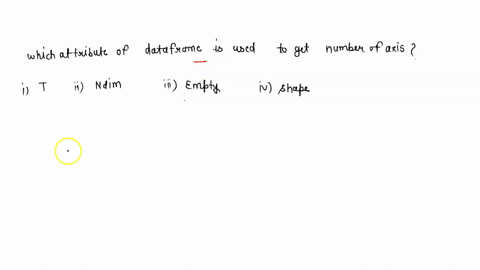 which attribute of dataframe is used to get number of axis ?
i) T ii) Ndim iii) Empty iv) shape